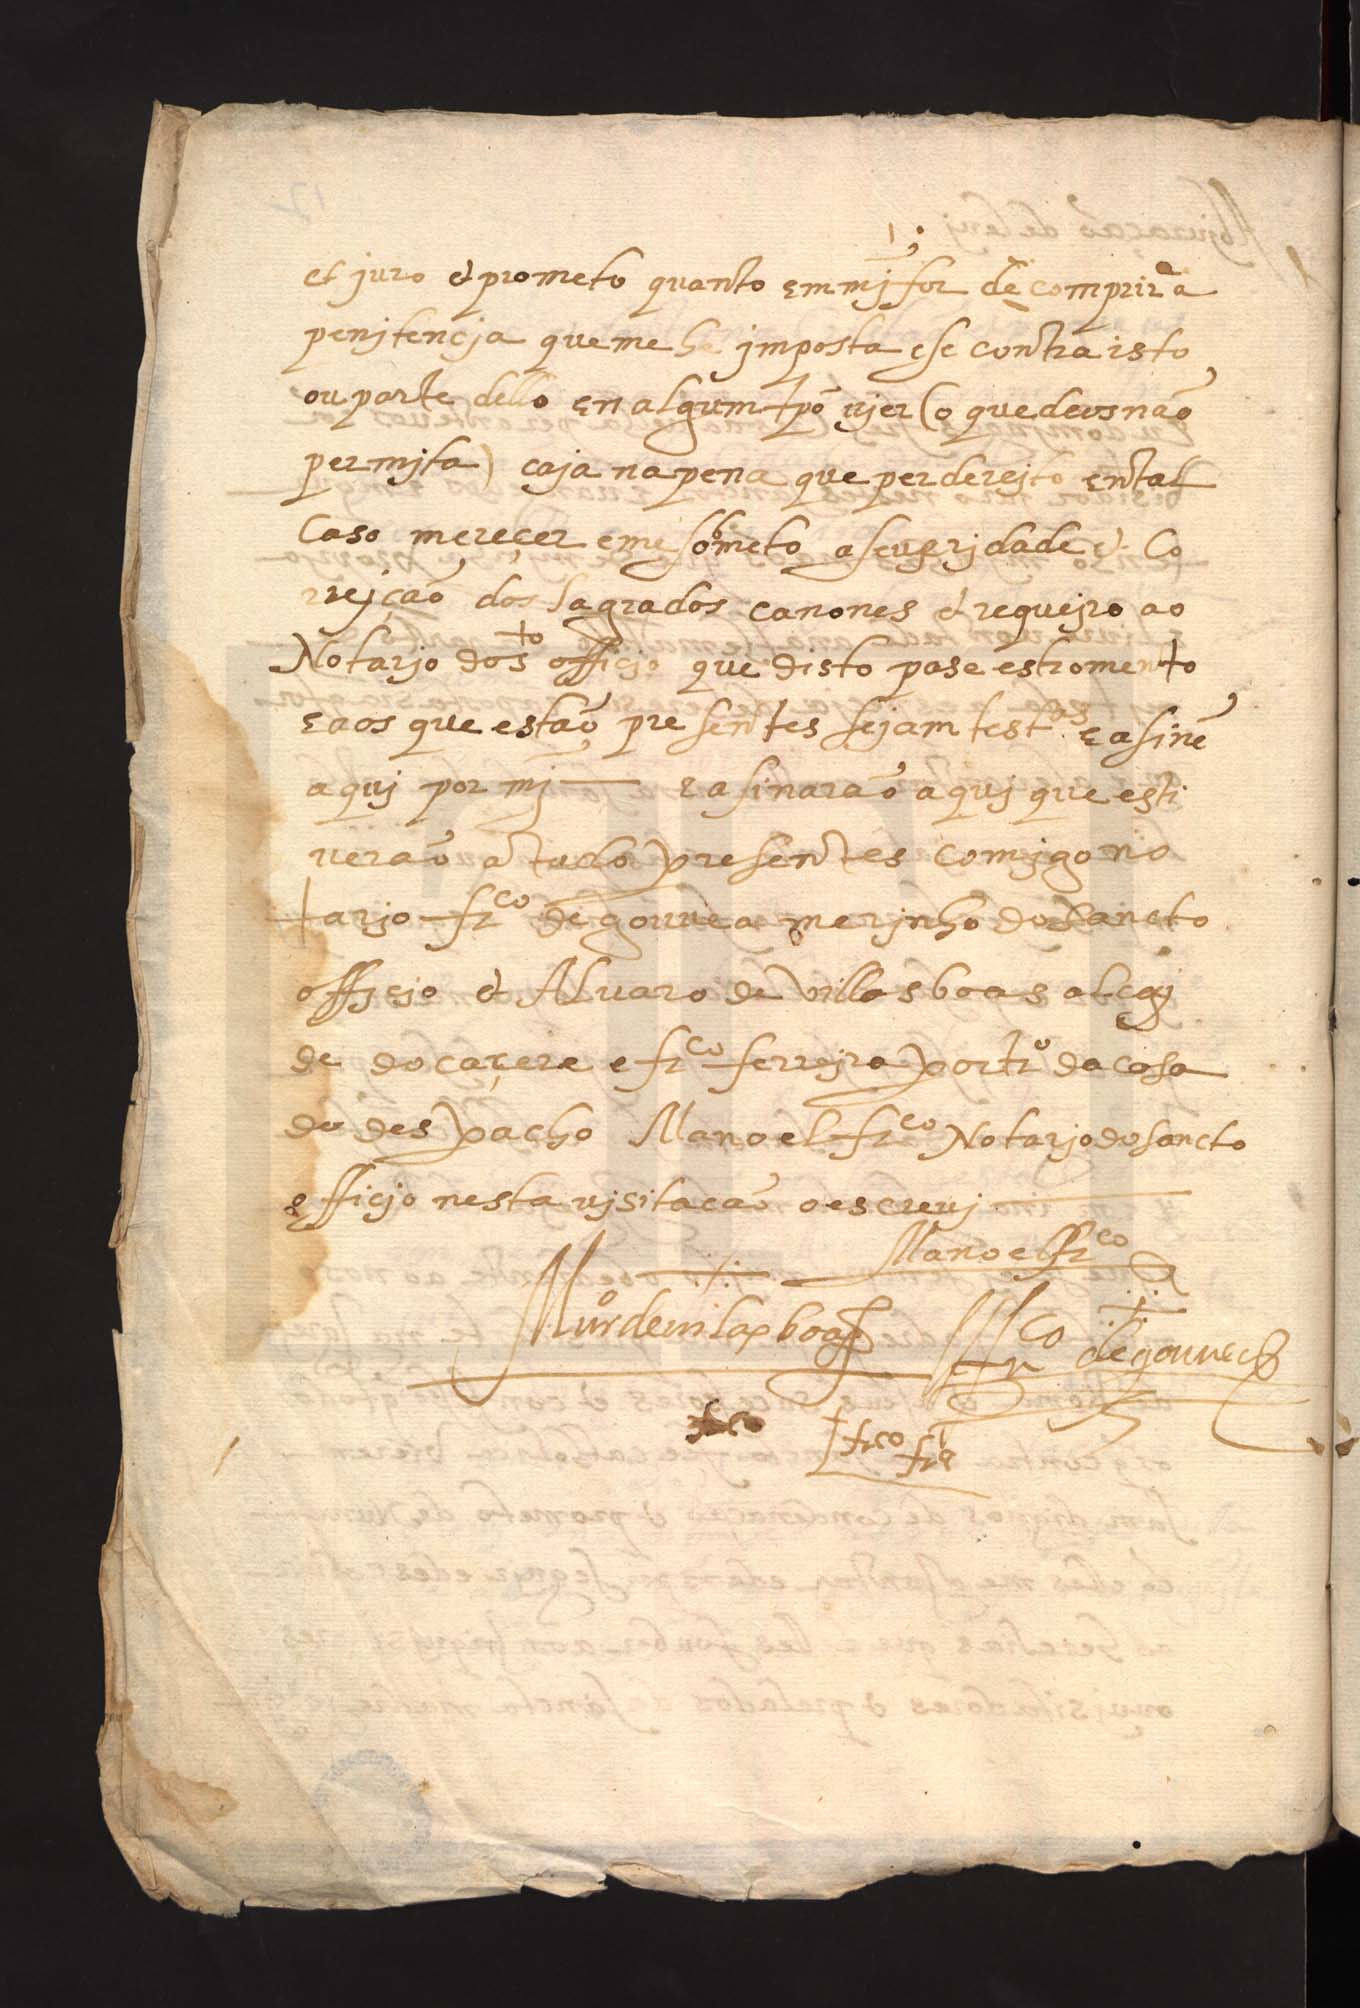 et juro & prometo quanto em mj̃ for de comprir a
penjtencja que me he jmposta e se contra isto
ou parte dello en algum tpõ vjer (o que deos não
permjta) caja na pena que per derejto en tal
Caso mereçer e me sobmeto a seueridade & Co
rrejcaõ dos sagrados canones & requejro ao
Notarjo do sto officjo que disto pase estromento
e aos que estaõ presentes sejam testas e asinẽ
aquj por mj̃ — e asinaraõ aquj que esti
veraõ a tudo presentes comjgo no
tarjo frco de gouvea merjnho do sancto
officjo & Alvaro de villas boas alcaj
de do carçere e frco ferrejra portro da casa
do despacho Manoel frco Notarjo do sancto
officjo nesta vjsitacaõ o escrevj
Manoel frco
Aluro de vilas boas
frco de gouvea
frco frra